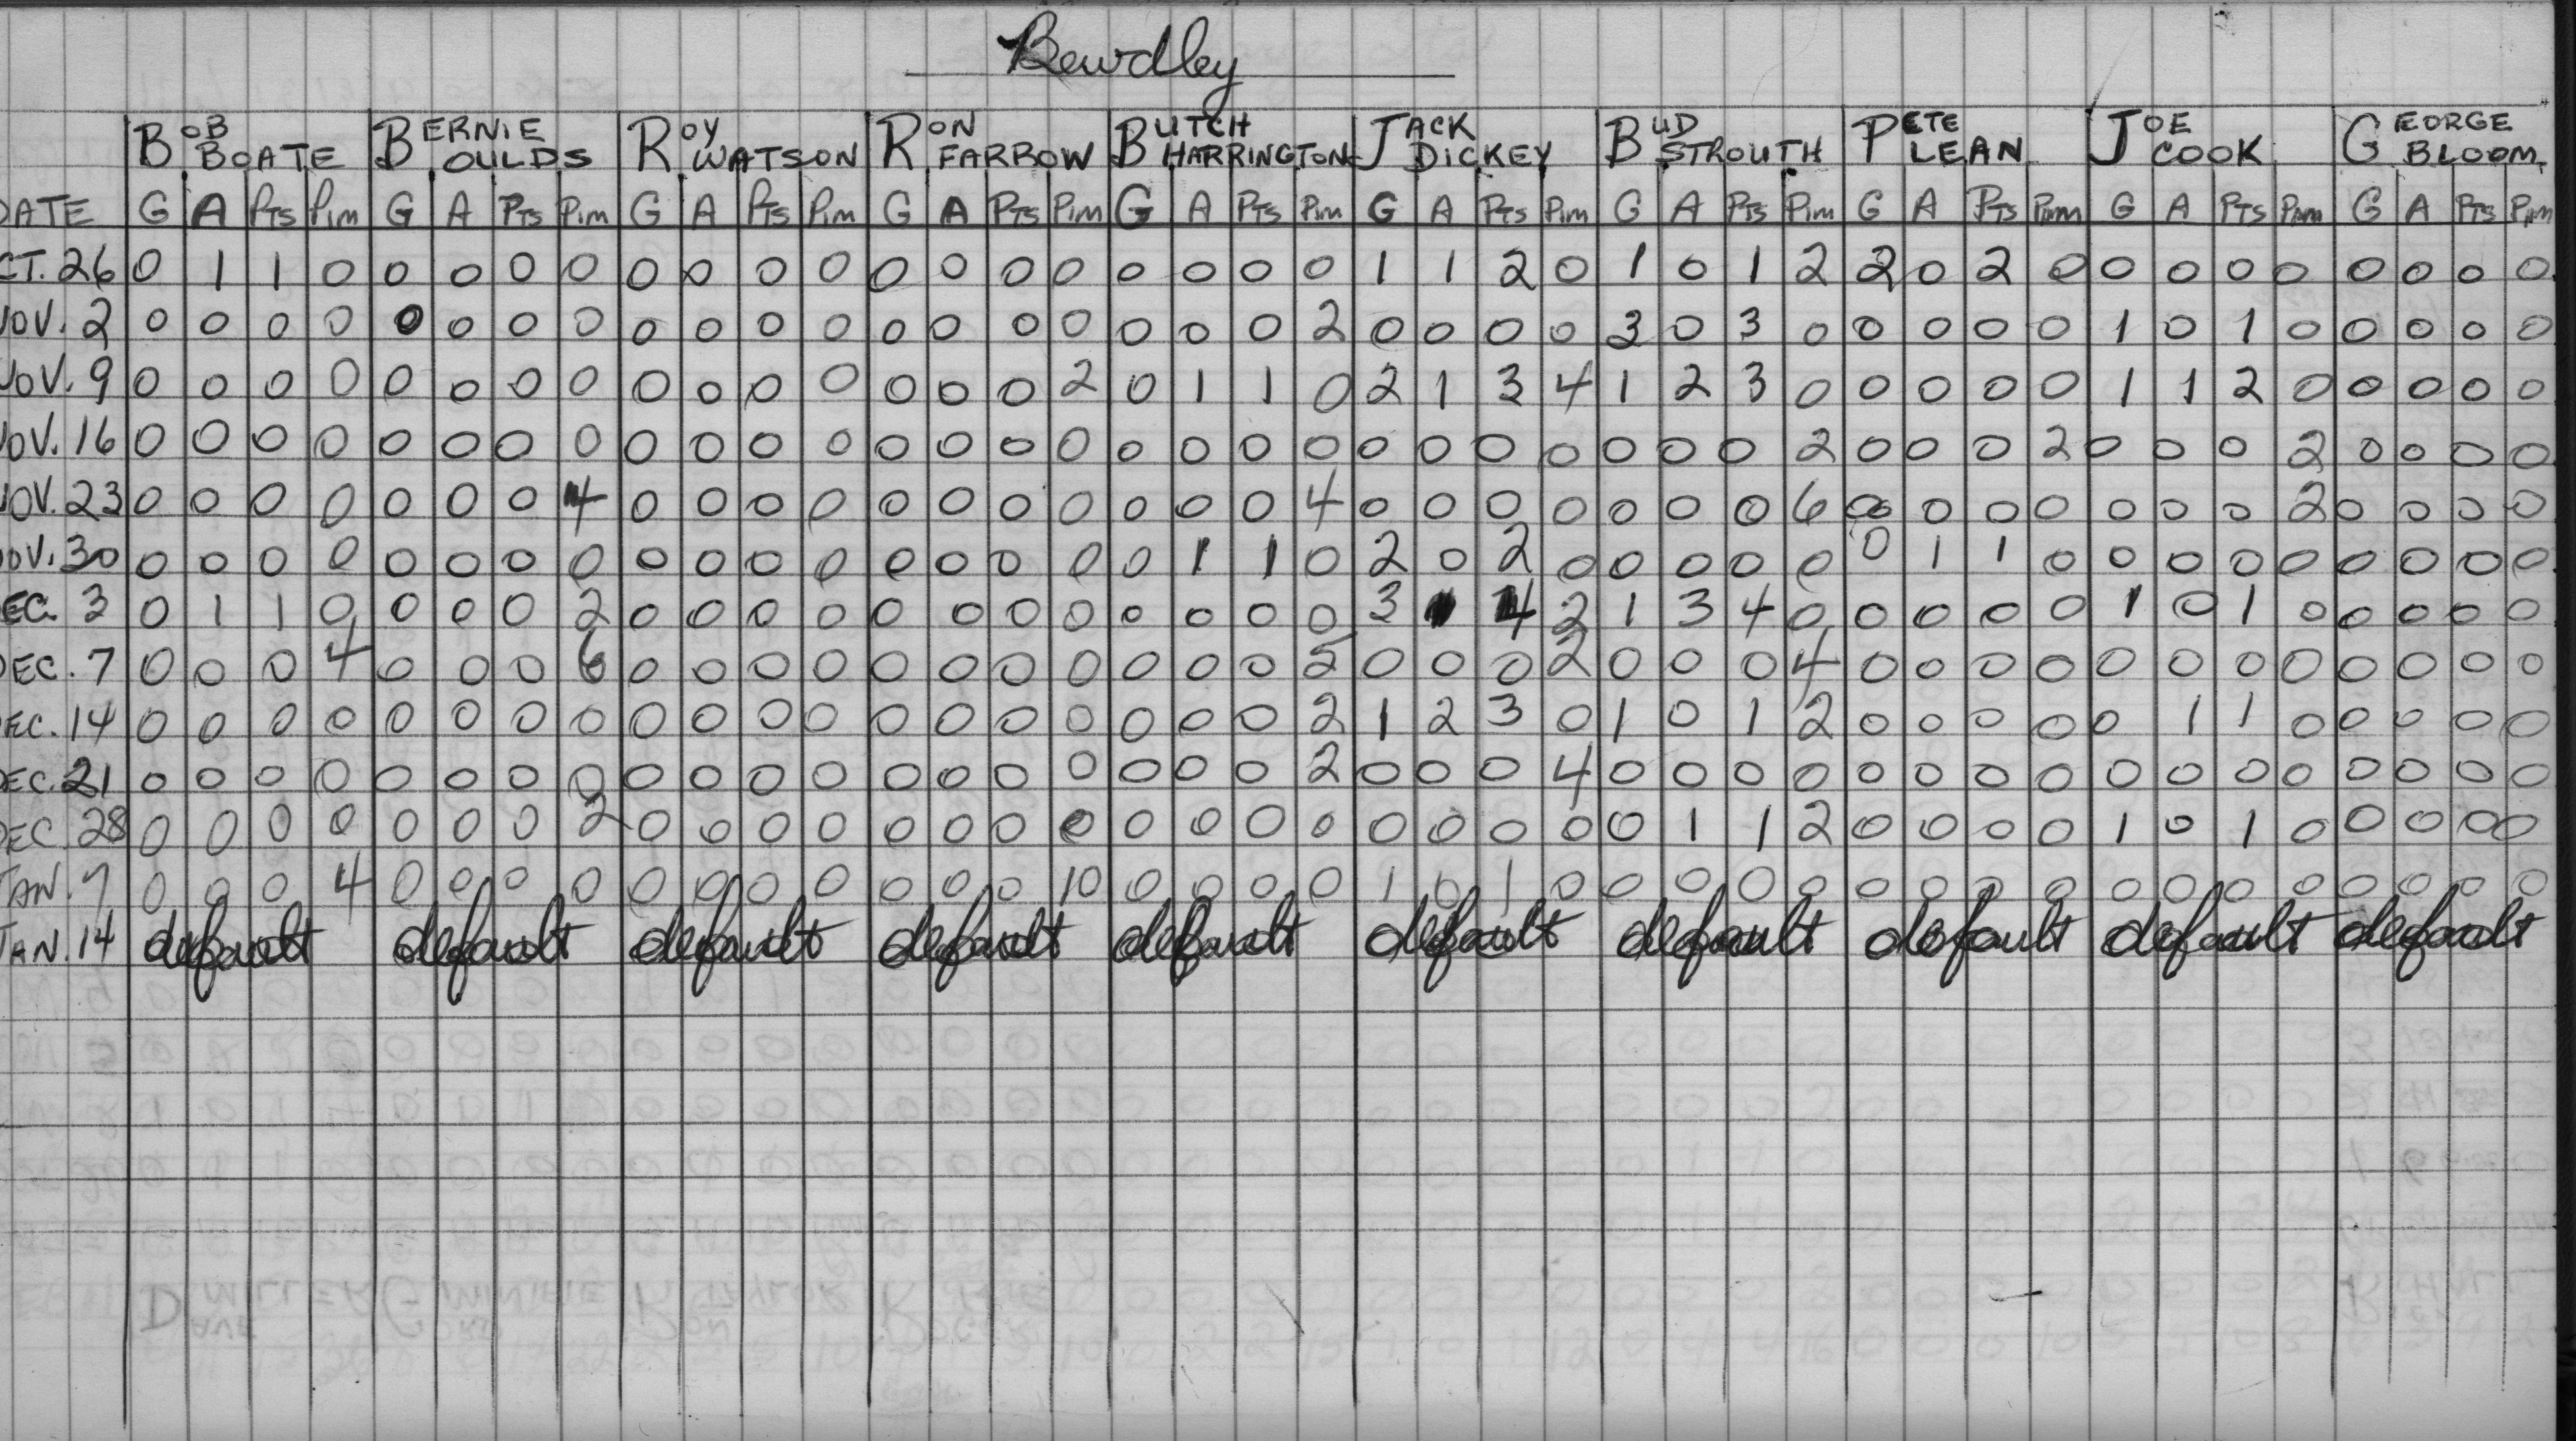 Bewdley
BOB BOATE BERNIE OULDS ROY WATSON RON FARROW BUTCH HARRINGTON JACK DICKEY BUD STROUTH PETE LEAN JOE COOK GEORGE BLOOM
DATE G A PTS Pim G A PTS Pim G A PTS Pim G A PTS Pim G A PTS Pim G A PTS Pim G A PTS Pim G A PTS Pim G A PTS Pim G A PTS Pim
CT. 26 0 1 1 0 0 0 0 0 0 0 0 0 0 0 0 0 0 0 0 0 1 1 2 0 1 0 1 2 2 0 2 0 0 0 0 0 0 0 0 0
NOV. 2 0 0 0 0 0 0 0 0 0 0 0 0 0 0 0 0 0 0 0 2 0 0 0 0 3 0 3 0 0 0 0 0 1 0 1 0 0 0 0 0
NOV. 9 0 0 0 0 0 0 0 0 0 0 0 0 0 0 0 2 0 1 1 0 2 1 3 4 1 2 3 0 0 0 0 0 1 1 2 0 0 0 0 0
OV. 16 0 0 0 0 0 0 0 0 0 0 0 0 0 0 0 0 0 0 0 0 0 0 0 0 0 0 0 2 0 0 0 2 0 0 0 2 0 0 0 0
OV. 23 0 0 0 0 0 0 0 4 0 0 0 0 0 0 0 0 0 0 0 4 0 0 0 0 0 0 0 6 0 0 0 0 0 0 0 2 0 0 0 0
OV. 30 0 0 0 0 0 0 0 0 0 0 0 0 0 0 0 0 0 1 1 0 2 0 2 0 0 0 0 0 0 1 1 0 0 0 0 0 0 0 0 0
EC. 3 0 1 1 0 0 0 0 2 0 0 0 0 0 0 0 0 0 0 0 0 3 4 2 1 3 4 0 0 0 0 0 1 0 1 0 0 0 0 0
DEC. 7 0 0 0 4 0 0 0 6 0 0 0 0 0 0 0 0 0 0 0 5 0 0 0 2 0 0 0 4 0 0 0 0 0 0 0 0 0 0 0 0
EC. 14 0 0 0 0 0 0 0 0 0 0 0 0 0 0 0 0 0 0 0 2 1 2 3 0 1 0 1 2 0 0 0 0 0 1 1 0 0 0 0 0
EC. 21 0 0 0 0 0 0 0 0 0 0 0 0 0 0 0 0 0 0 0 2 0 0 0 4 0 0 0 0 0 0 0 0 0 0 0 0 0 0 0 0
DEC. 28 0 0 0 0 0 0 0 2 0 0 0 0 0 0 0 0 0 0 0 0 0 0 0 0 0 1 1 2 0 0 0 0 1 0 1 0 0 0 0 0
JAN. 7 0 0 0 4 0 0 0 0 0 0 0 0 0 0 0 10 0 0 0 0 1 0 1 0 0 0 0 0 0 0 0 0 0 0 0 0 0 0 0 0
JAN. 14 default default default default default default default default default default